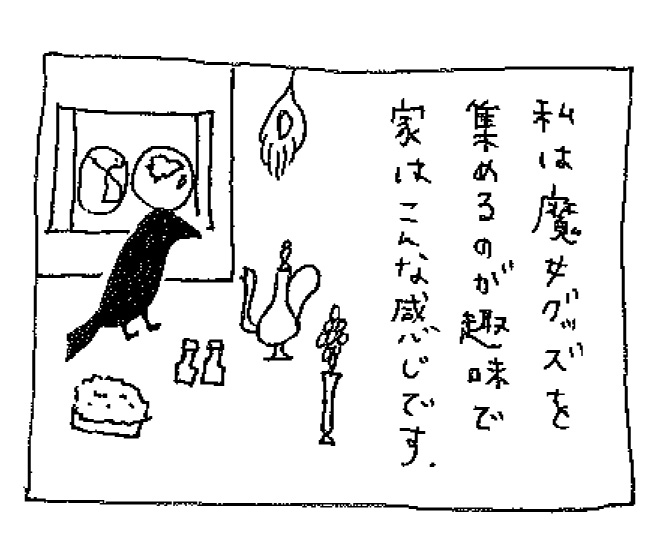 私は魔女グッズを
集めるのが趣味で
家はこんな感じです.